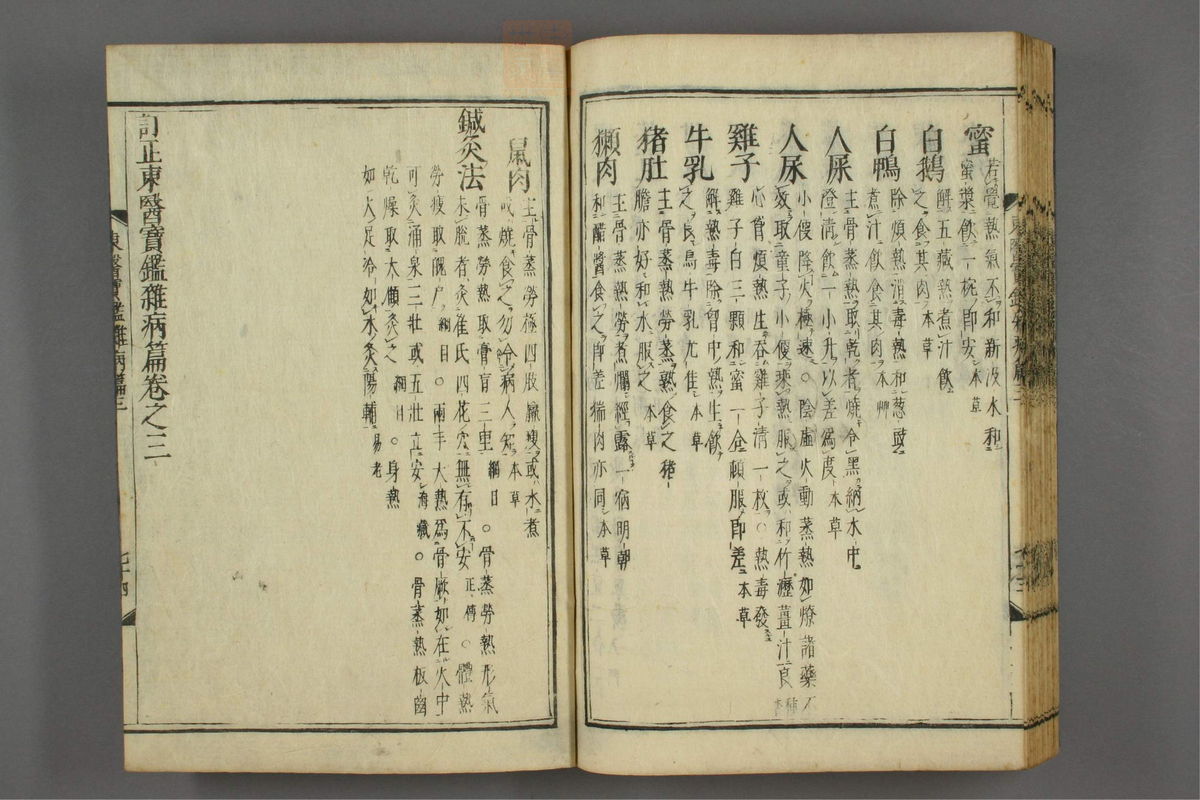 蜜
若覺熱氣不和新汲水和
蜜漿飮一椀卽安 本草
白鵝
解五藏熱煮汁飮
之食其肉 本草
白鴨
除煩熱消毒熱和葱豉
煮汁飮食其肉 本草
人屎
主骨蒸熱取乾者燒令黑納水中
澄淸飮一小升以差爲度 本草
人尿
小便降火極速○陰虛火動蒸熱如燎諸藥不
效取童子小便乘熱服之或和竹瀝薑汁良 種杏
雞子
心胷煩熱生吞雞子淸一枚○熱毒發
雞子白三顆和蜜一合頓服卽差 本草
牛乳
解熱毒除胷中熱生飮
之良烏牛乳尤佳 本草
猪肚
主骨蒸熱勞蒸熟食之猪
膽亦好和水服之 本草
獺肉
主骨蒸熱勞煮爛經露一宿明朝
和醋醬食之卽差 猯肉亦同 本草
鼠肉
主骨蒸勞極四肢羸瘦或水煮
或燒食之勿令病人知 本草
鍼灸法
骨蒸勞熱取膏肓三里 綱目 ○骨蒸勞熱形氣
未脫者灸崔氏四花穴無有不安 正傳 ○體熱
勞疲取魄戶 綱目 ○兩手大熱爲骨厥如在火中
可灸涌泉三壯或五壯立安 海藏 ○骨蒸熱板齒
乾燥取大顀灸之 綱目 ○身熱
如火足冷如水灸陽輔 易老
訂正東醫寶鑑雜病篇卷之三
東醫寶鑑雜病篇三
七十四